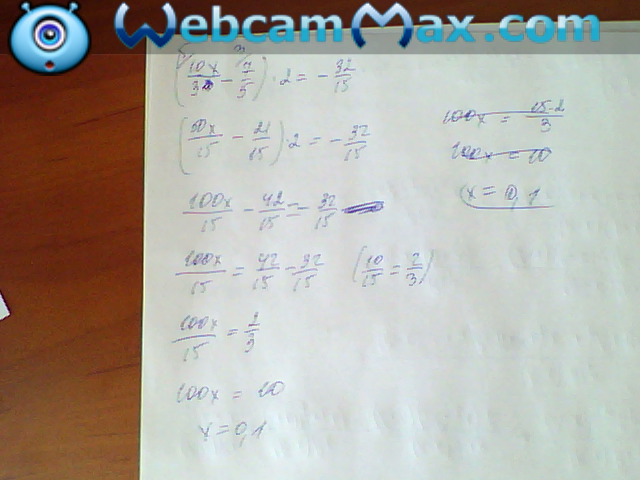 WebcamMax.com
5 3
(10x/3 - 7/5) · 2 = - 32/15
(50x/15 - 21/15) · 2 = - 32/15
100x/15 - 42/15 = - 32/15
100x/15 = 42/15 - 32/15 (10/15 = 2/3)
100x/15 = 2/3
100x = 10
x = 0,1
100x = 15·2/3
100x = 10
x = 0,1